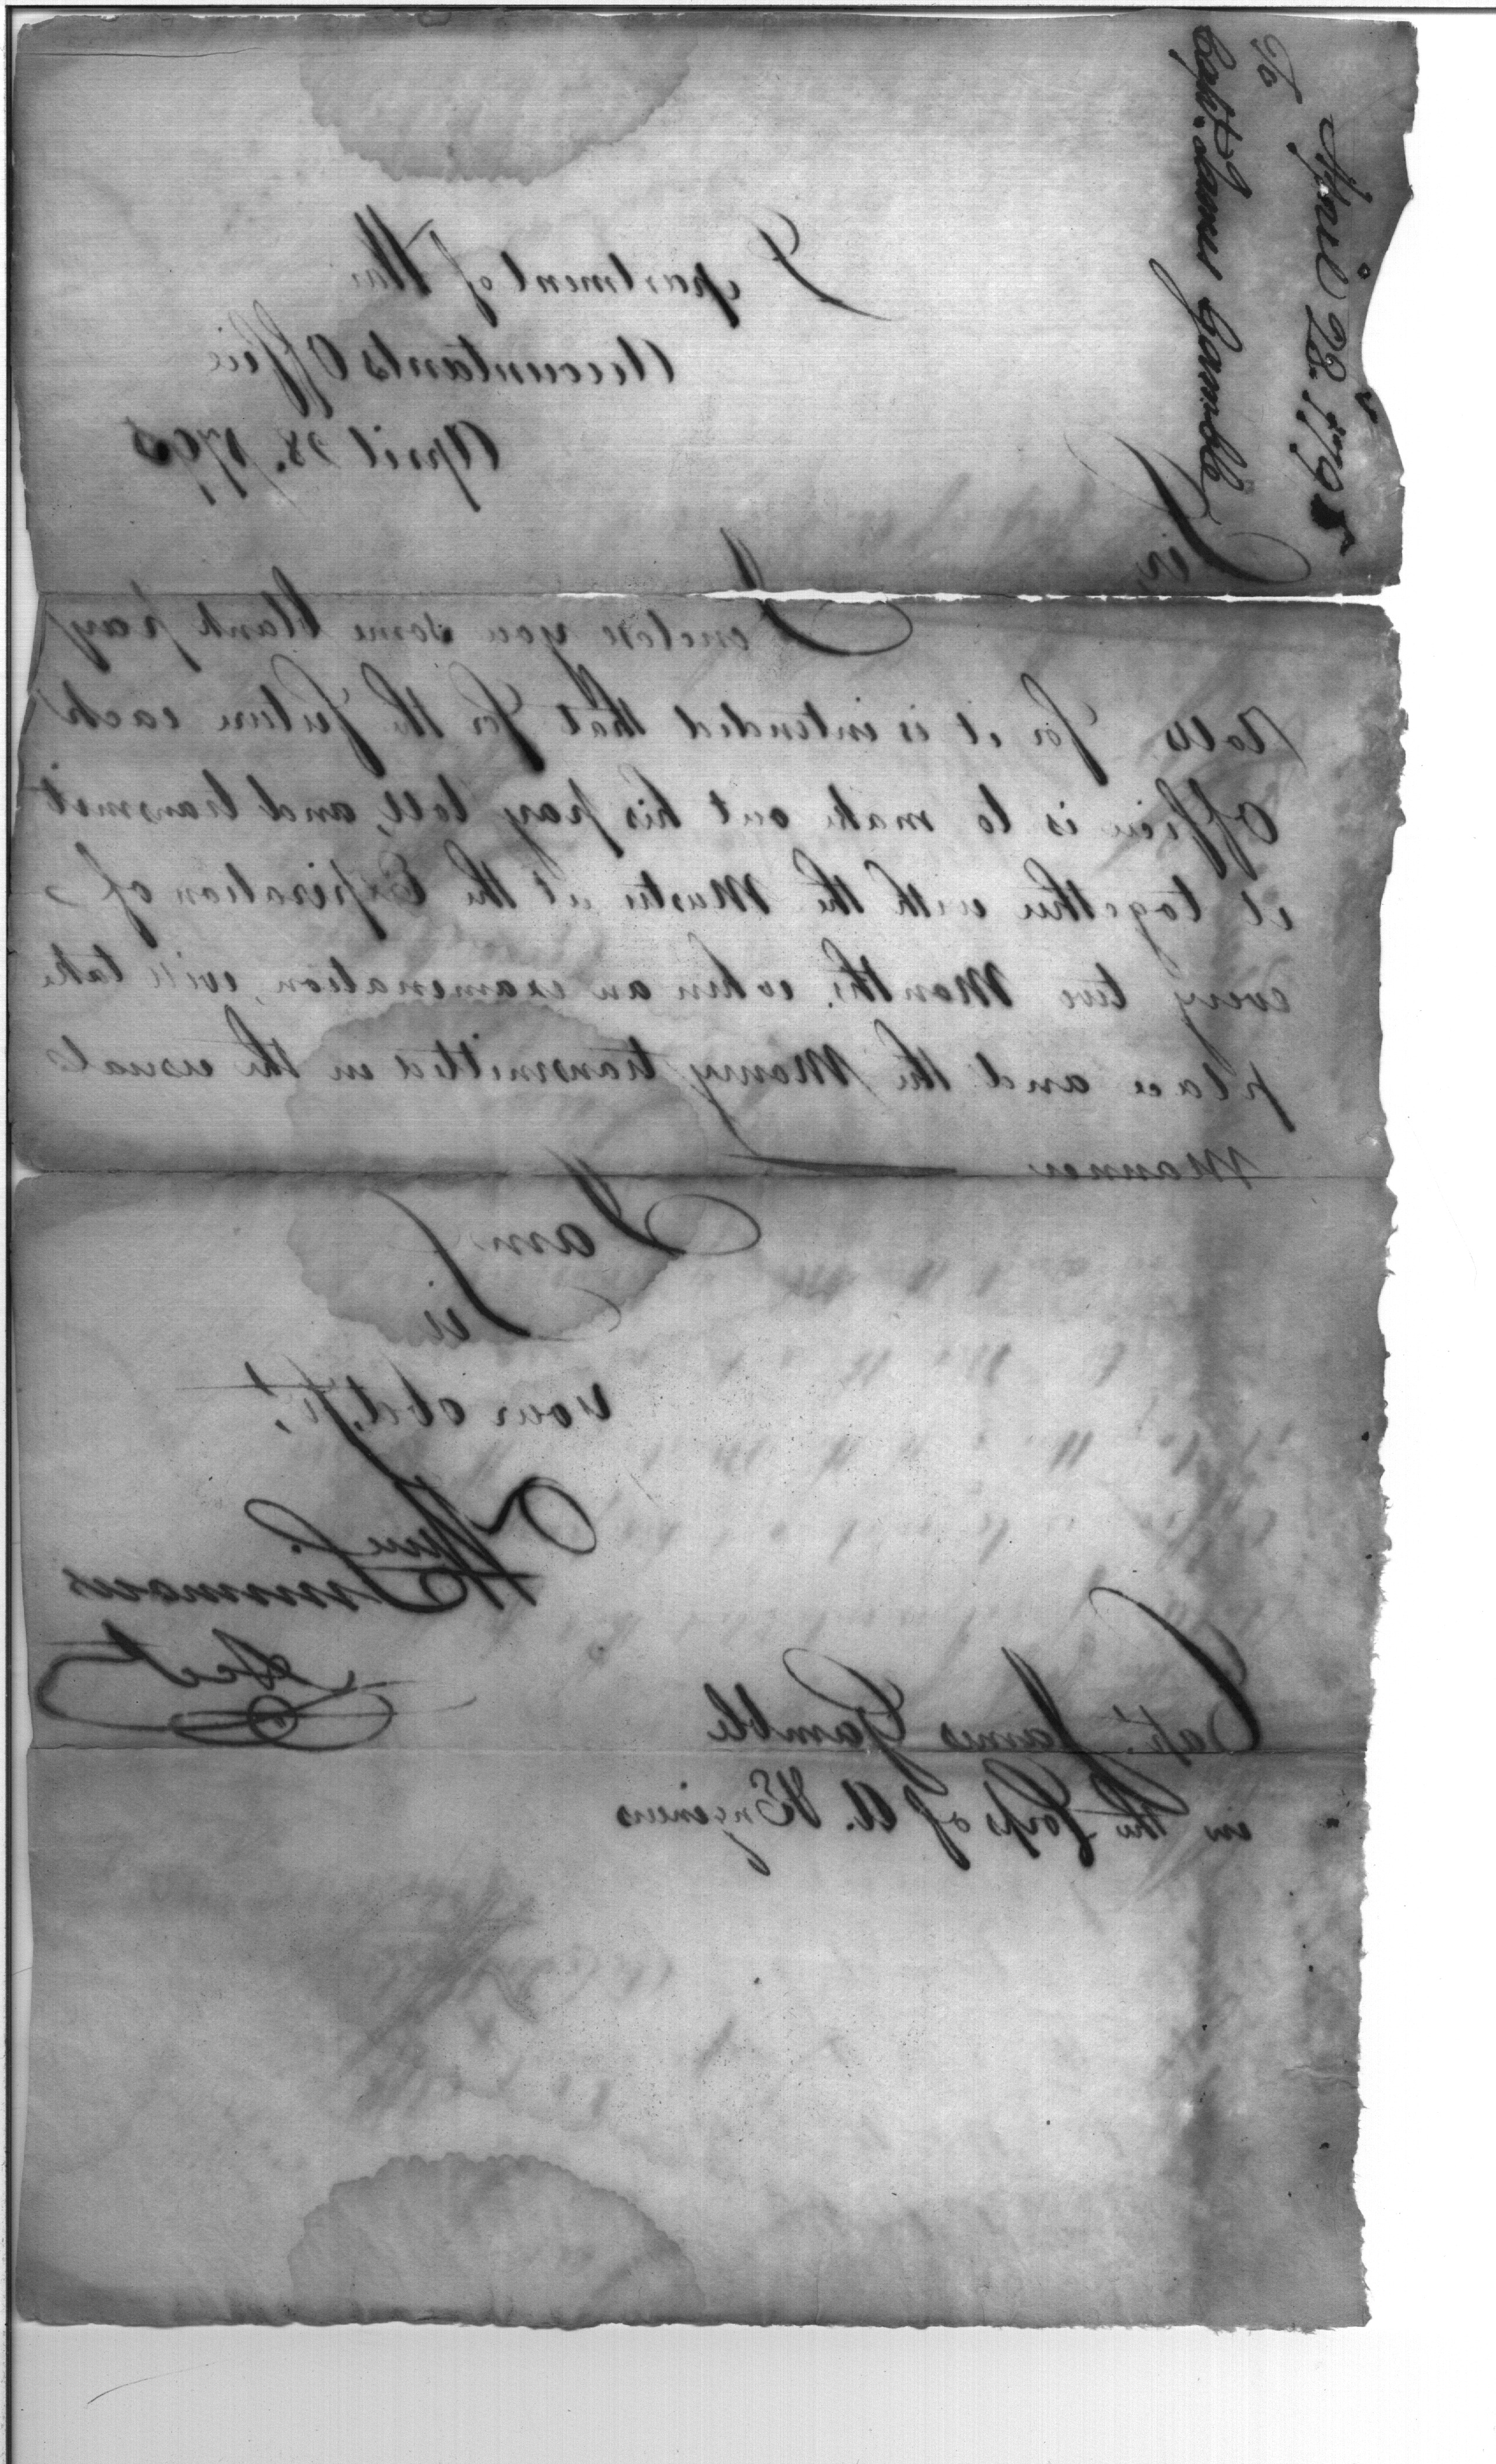 April 28. 1795
To
Capt. James Gamble
Department of War
Accountants Office
April 28. 1795
Sir
I enclose you some blank pay
rolls for it is intended that for the future each
Officer is to make out his pay roll, and transmit
it together with the Muster at the Expiration of
every two Months, when an examination, will take
place and the Money transmitted in the usual
Manner
I am
Sir
your obd. st.
Wm. Simmons
Acct
Capt. James Gamble
in the Corps of A. & Engineers